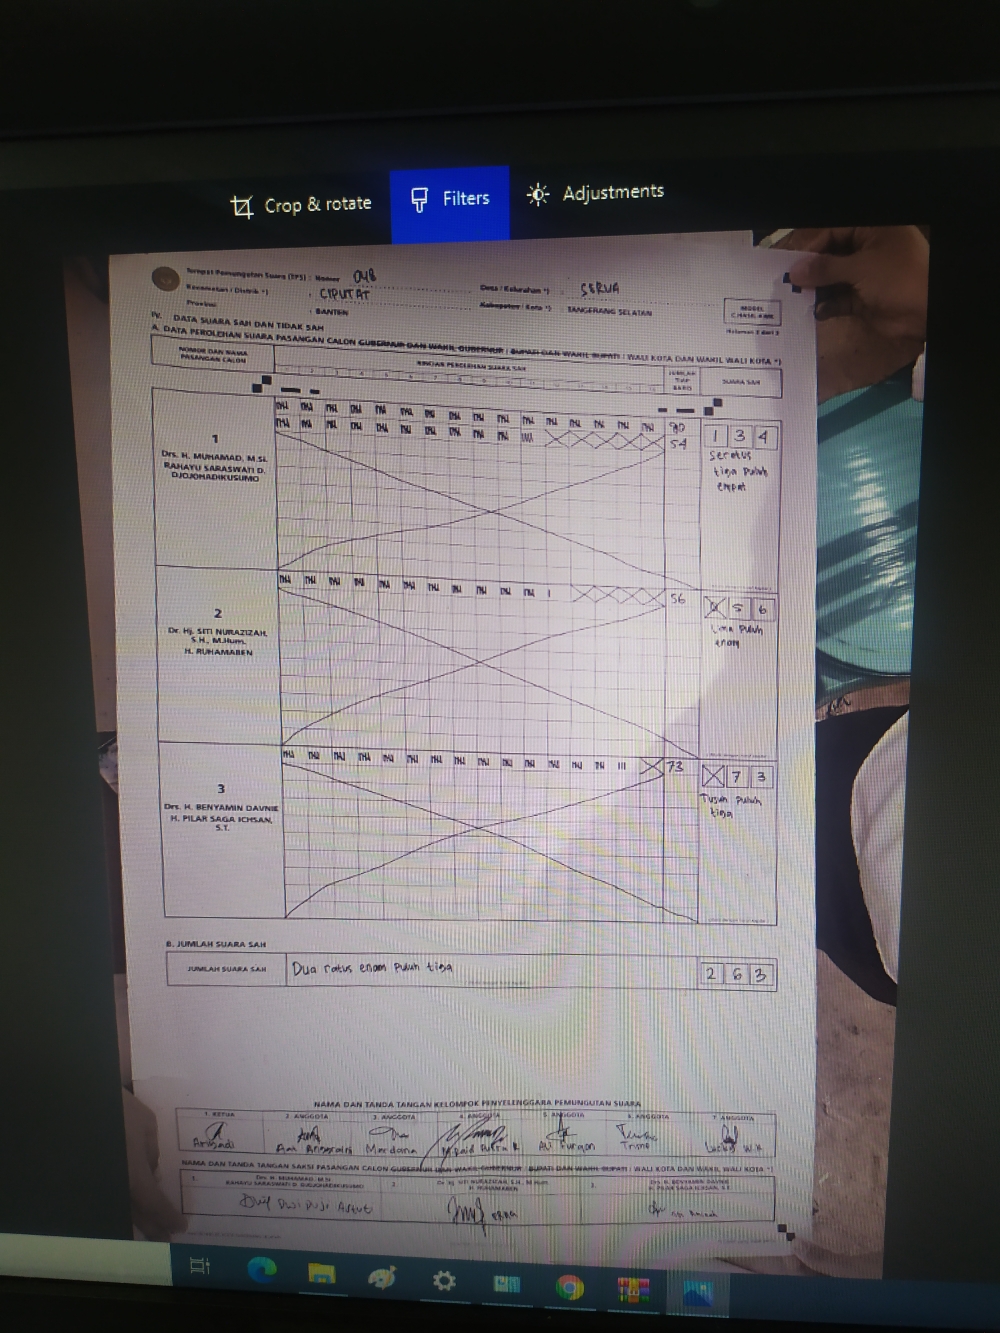 Crop & rotate Filters Adjustments
Tempat Pemungutan Suara (TPS) : Nomor 048
Kecamatan / Distrik *) : CIPUTAT
Desa / Kelurahan *) : SERUA
Provinsi : BANTEN
Kabupaten / Kota *) : TANGERANG SELATAN
MODEL
Halaman 2 dari 2
IV. DATA SUARA SAH DAN TIDAK SAH
A. DATA PEROLEHAN SUARA PASANGAN CALON GUBERNUR DAN WAKIL GUBERNUR / BUPATI DAN WAKIL BUPATI / WALI KOTA DAN WAKIL WALI KOTA *)
NOMOR DAN NAMA PASANGAN CALON
RINCIAN PEROLEHAN SUARA SAH
JUMLAH TIAP BARIS
SUARA SAH
1
Drs. H. MUHAMAD, M.Si.
RAHAYU SARASWATI D.
DJOJOHADIKUSUMO
54
1 3 4
Seratus
tiga puluh
empat
2
Dr. Hj. SITI NURAZIZAH,
S.H., M.Hum.
H. RUHAMABEN
56
X 5 6
Lima puluh
enam
3
Drs. H. BENYAMIN DAVNIE
H. PILAR SAGA ICHSAN,
S.T.
73
X 7 3
Tujuh puluh
tiga
B. JUMLAH SUARA SAH
JUMLAH SUARA SAH
Dua ratus enam puluh tiga
2 6 3
NAMA DAN TANDA TANGAN KELOMPOK PENYELENGGARA PEMUNGUTAN SUARA
1. KETUA 2. ANGGOTA 3. ANGGOTA 4. ANGGOTA 5. ANGGOTA 6. ANGGOTA 7. ANGGOTA
Mardiana
Ali Furqon
NAMA DAN TANDA TANGAN SAKSI PASANGAN CALON GUBERNUR DAN WAKIL GUBERNUR / BUPATI DAN WAKIL BUPATI / WALI KOTA DAN WAKIL WALI KOTA *)
1. Drs. H. MUHAMAD, M.Si.
RAHAYU SARASWATI D. DJOJOHADIKUSUMO
2. Dr. Hj. SITI NURAZIZAH, S.H., M.Hum.
H. RUHAMABEN
3. Drs. H. BENYAMIN DAVNIE
H. PILAR SAGA ICHSAN, S.T.